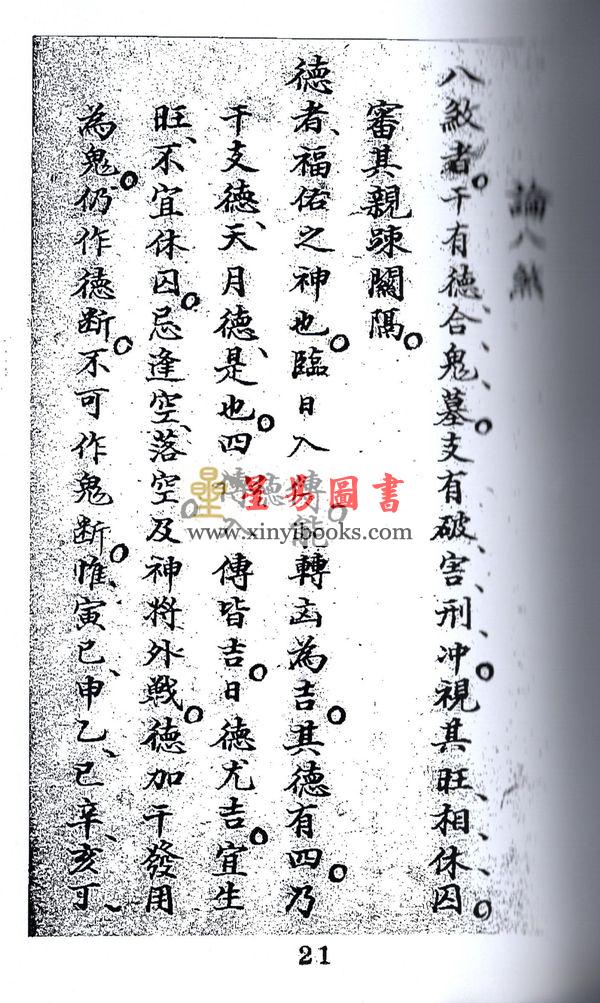 論八煞
八煞者。干有德、合、鬼、墓。支有破、害、刑、冲。視其旺、相、休、囚。
審其親踈關隔。
德者、福佑之神也。臨日入傳能轉凶為吉。其德有四。乃
干支德、天月德、是也。四德入傳皆吉。日德尤吉。宜生
旺、不宜休囚。忌逢空、落空及神將外戰。德加干發用
為鬼。仍作德断。不可作鬼断。惟寅巳、申乙、巳辛、亥丁、
星易圖書
www.xinyibooks.com
21